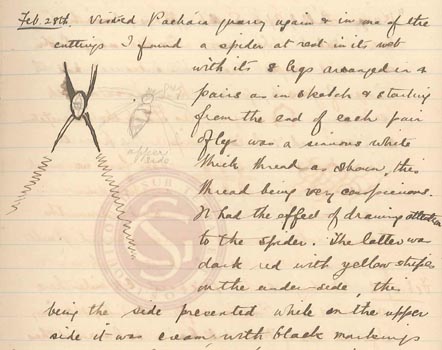 Feb. 28th. Visited Pachaia quarry again & in one of the
cuttings I found a spider at rest in its web
with its 8 legs arranged in 4
pairs as in sketch & starting
from the end of each pair
of legs was a sinuous white
thick thread as shown, this
thread being very conspicuous.
It had the effect of drawing attention
to the spider. The latter was
dark red with yellow stripes
on the under-side, this
being the side presented while on the upper
side it was cream with black markings
upper
side